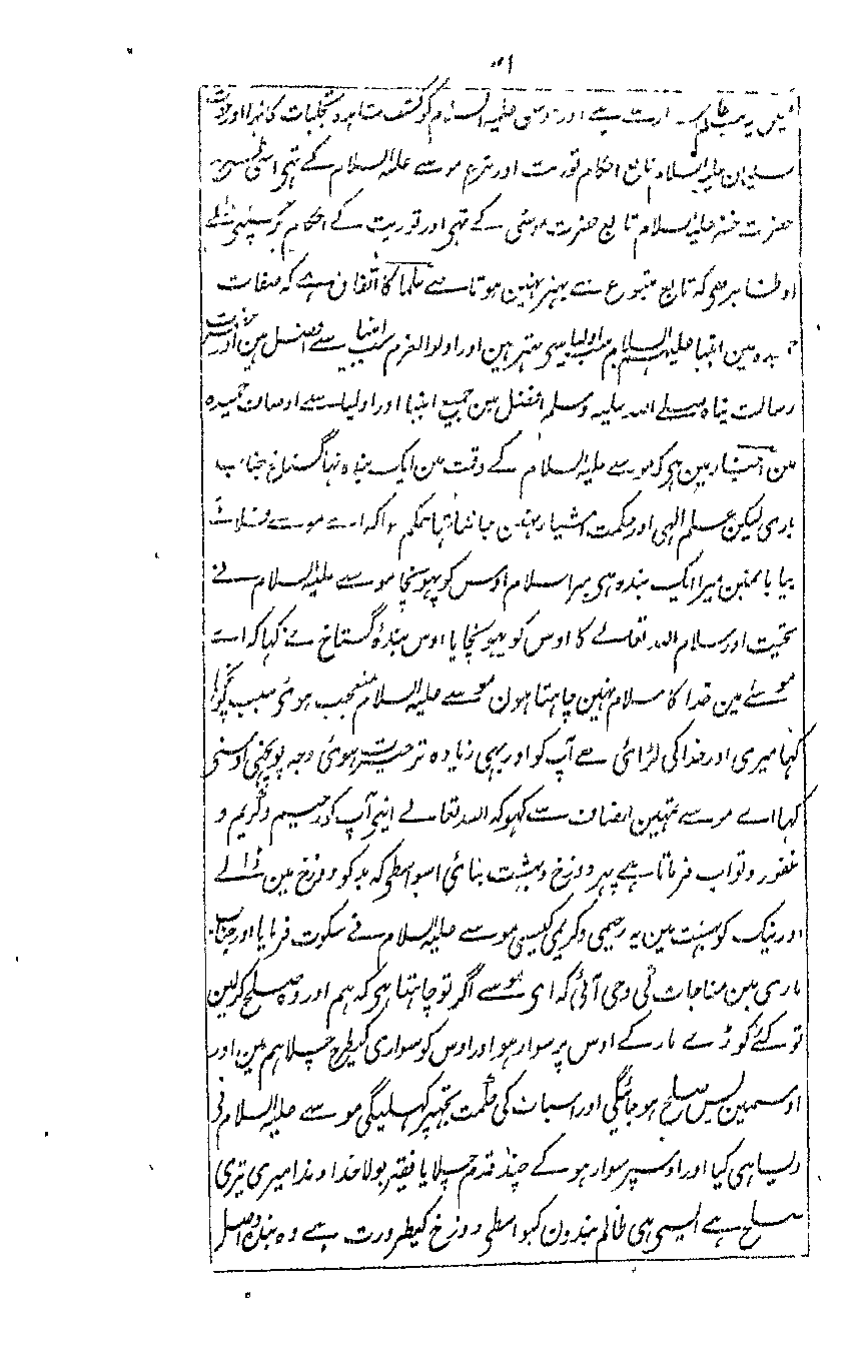 علیہ السلام کو کشف مشاہدہ تجلیات کا نہ تھا اور حضرت
سلیمان علیہ السلام تابع احکام توریت اور شرع موسے علیہ السلام کے تہی اسی طرح
حضرت خضر علیہ السلام تابع حضرت موسی کے تہی اور توریت کے احکام پر چلتی تہے
اور ظاہر ہی کہ تابع متبوع سے بہتر نہین ہوتا ہے علما کا اتفاق ہے کہ صفات
حمیدہ مین انبیا علیہم السلام سب اولیا سی بہتر ہین اور اولوالعزم سب انبیا سے افضل ہین اور حضرت
رسالت پناہ صلے اللہ علیہ وسلم افضل ہین جمیع انبیا اور اولیا سے اوصاف حمیدہ
مین اخبار مین ہی کہ موسے علیہ السلام کے وقت مین ایک بندہ تہا گستاخ جناب
باری لیکن علم الہی اور حکمت اشیا نہین جانتا تہا حکم ہوا کہ اے موسے فلانے
بیابان مین میرا ایک بندہ ہی میرا سلام اوس کو پہونچا موسے علیہ السلام نے
تحیت اور سلام اللہ تعالے کا اوس کو پہونچایا اوس بندۂ گستاخ نے کہا کہ اے
موسے مین خدا کا سلام نہین چاہتا ہون موسے علیہ السلام متعجب ہوئی سبب پوچہا
کہا میری اور خدا کی لڑائی ہے آپ کو اور بہی زیادہ تر حیرت ہوئی وجہ پوچہی اوسنی
کہا اے موسے تمہین انصاف سے کہو کہ اللہ تعالے اپنی آپ کو رحیم و کریم و
غفور و تواب فرماتا ہے پہر دوزخ و بہشت بنائی اسواسطی کہ بد کو دوزخ مین ڈالے
اور نیک کو بہشت مین یہ رحیمی و کریمی کیسی موسے علیہ السلام نے سکوت فرمایا اور جناب
باری مین مناجات کی وحی آئی کہ ای موسے اگر تو چاہتا ہی کہ ہم اور وہ صلح کرلین
تو کئے کوڑے مار کے اوس پر سوار ہو اور اوس کو سواری کیطرح چلا ہم مین اور
اوسمین بس صلح ہو جائیگی اور اسبات کی حکمت تجہپر کہلیگی موسے علیہ السلام نی
ویسا ہی کیا اور اوسپر سوار ہو کے چند قدم چلایا فقیر بولا خداوندا میری تیری
صلح ہے ایسی ہی ظالم بندون کیواسطی دوزخ کی ضرورت ہے وہ بندہ